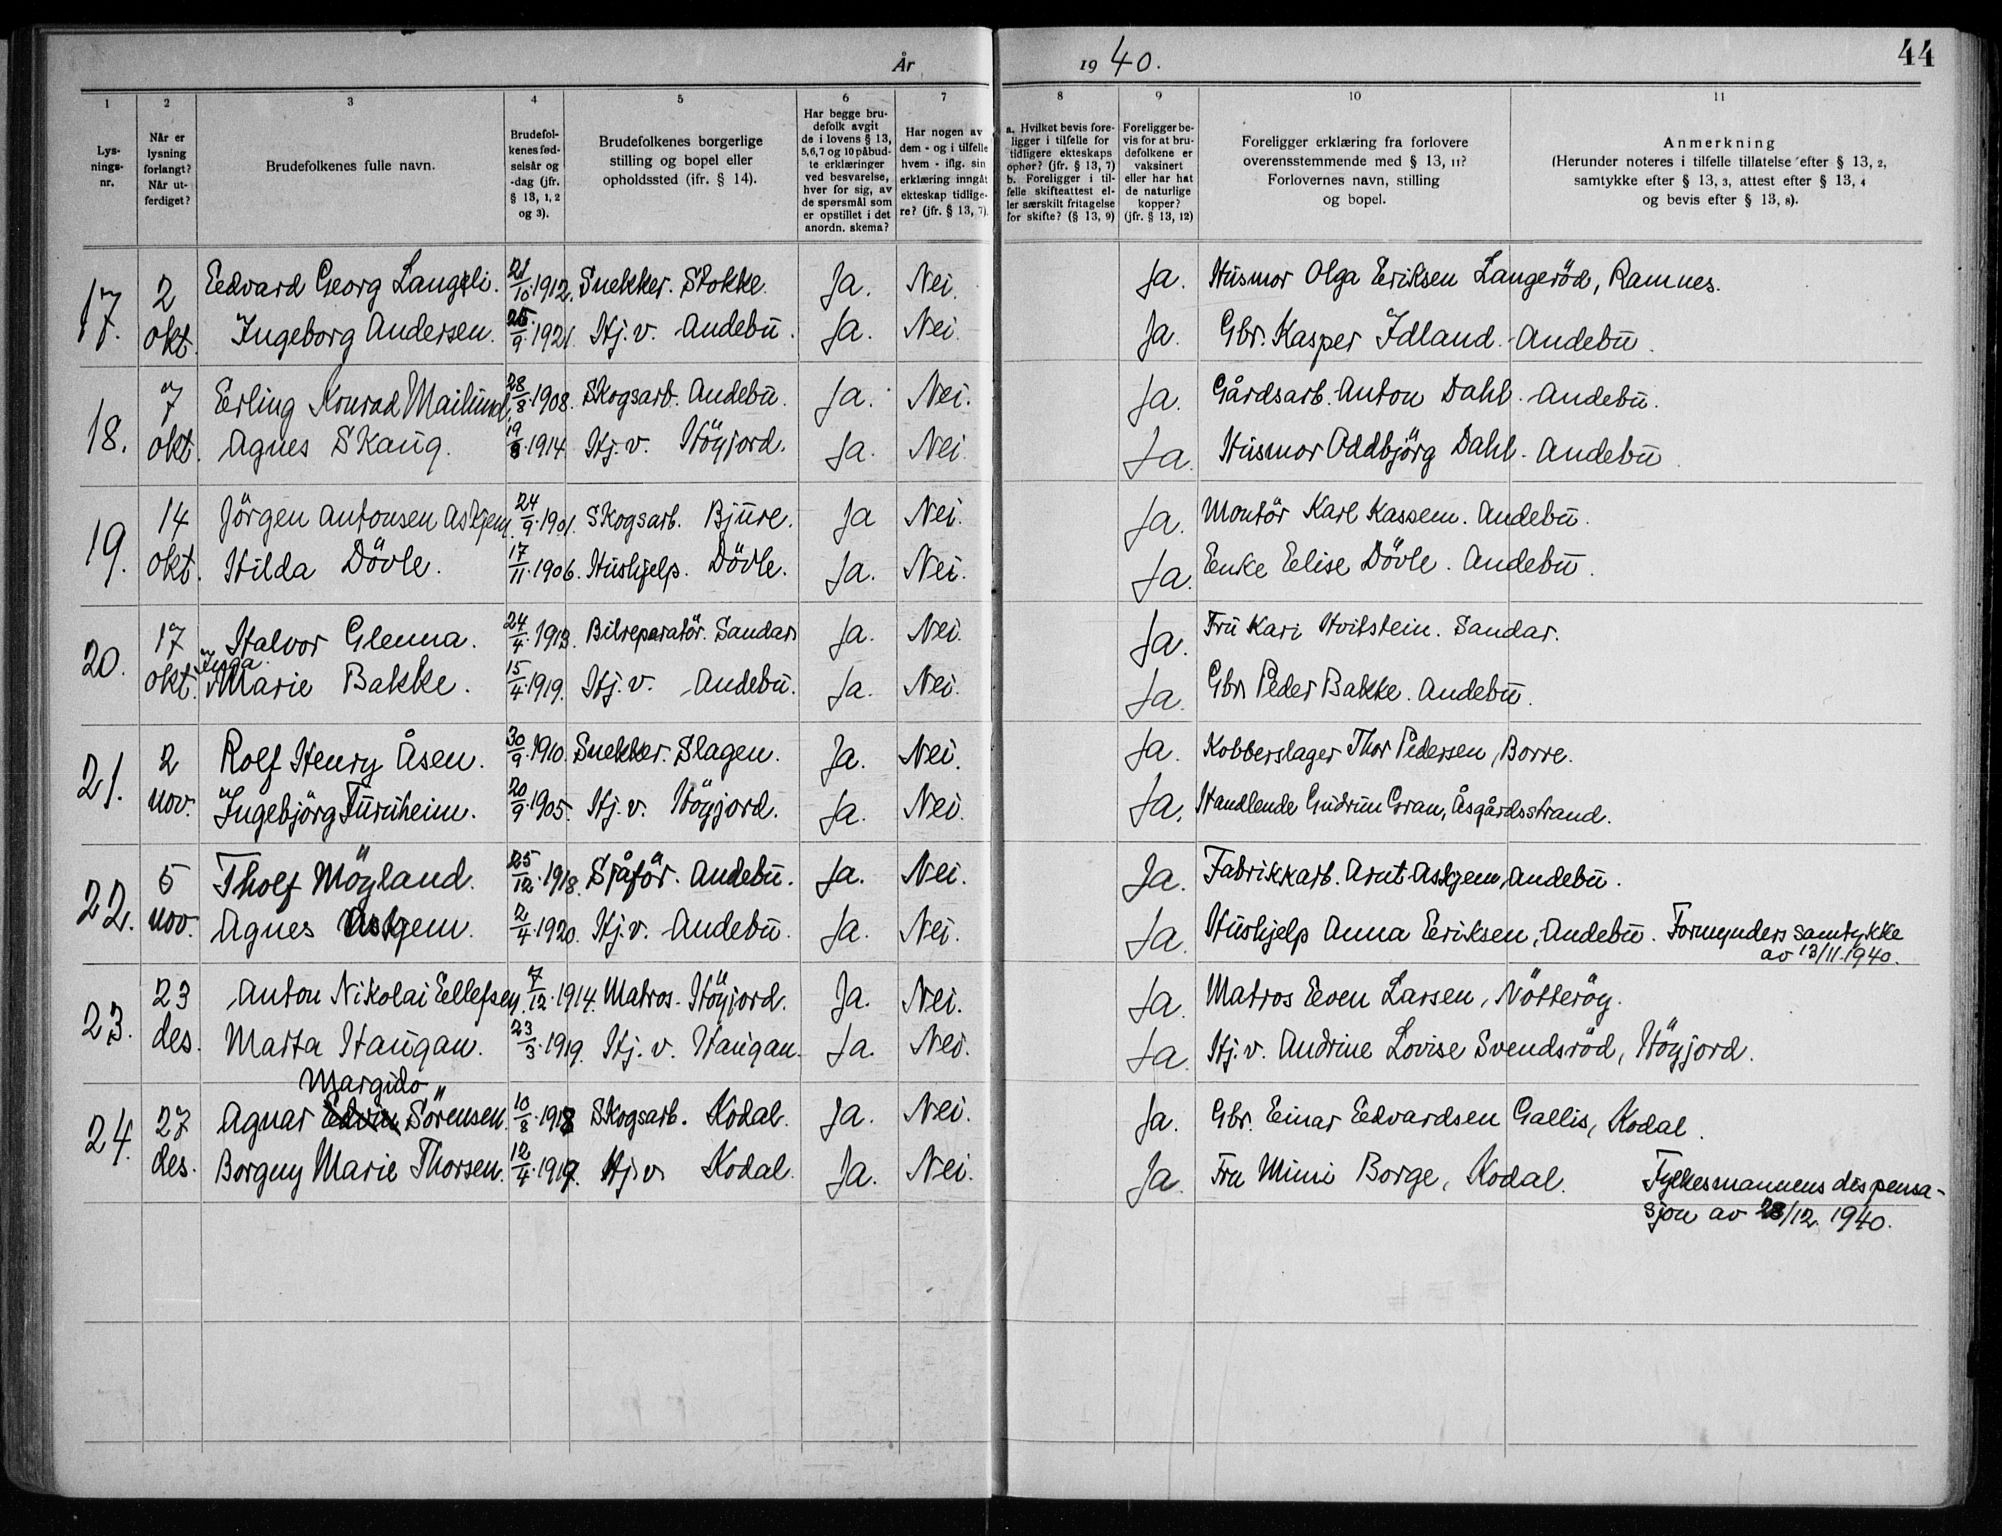 År 1940.
44
1 2 3 4 5 6 7 8 9 10 11
Lys-
nings-
nr.
Når er
lysning
forlangt?
Når ut-
ferdiget?
Brudefolkenes fulle navn.
Brudefol-
kenes fød-
selsår og
-dag (jfr.
§ 13, 1, 2
og 3).
Brudefolkenes borgerlige
stilling og bopel eller
opholdssted (jfr. § 14).
Har begge bru-
defolk avgit
de i lovens § 13,
5, 6, 7 og 10 påbud-
te erklæringer
ved besvarelse,
hver for sig, av
de spørsmål som
er opstillet i det
anordn. skema?
Har nogen av
dem - og i tilfelle
hvem - iflg. sin
erklæring inngåt
ekteskap tidlige-
re? (jfr. § 13, 7).
a. Hvilket bevis fore-
ligger i tilfelle for
tidligere ekteskaps
ophør? (jfr. § 13, 7)
b. Foreligger i til-
felle skifteattest el-
ler særskilt fritagelse
for skifte? (§ 13, 9)
Foreligger be-
vis for at bru-
defolkene er
vaksinert
eller har hat
de naturlige
kopper?
(jfr. § 13, 12)
Foreligger erklæring fra forlovere
overensstemmende med § 13, 11?
Forlovernes navn, stilling
og bopel.
Anmerkning
(Herunder noteres i tilfelle tillatelse efter § 13, 2,
samtykke efter § 13, 3, attest efter § 13, 4
og bevis efter § 13, 8).
17. 2 Edvard Georg Langeli. 21/10.1912. Snekker. Stokke. Ja. Nei. Ja. Husmor Olga Eriksen Langeröd, Ramnes.
okt. Ingeborg Andersen. 25/9.1921. Hj.v. Andebu. Ja. Nei. Ja. Gbr. Kasper Idland. Andebu.
18. 7 Erling Konrad Mailund. 28/8.1908. Skogsarb. Andebu. Ja. Nei. Ja. Gårdsarb. Anton Dahl. Andebu.
okt. Agnes Skaug. 19/8.1914 Hj.v. Höyjord. Ja. Nei. Ja. Husmor Oddbjörg Dahl. Andebu.
19. 14 Jörgen Antonsen Askjem. 24/9.1901. Skogsarb. Bjure. Ja Nei. Ja. Montör Karl Kassem. Andebu.
okt. Hilda Dövle. 17/11.1906. Hushjelp. Dövle. Ja. Nei. Ja. Enke Elise Dövle. Andebu.
20. 17 Halvor Glenna. 24/4.1913. Bilreparatör. Sandar. Ja. Nei. Ja. Fru Kari Hvitstein. Sandar.
Inga
okt. Marie Bakke. 15/4.1919. Hj.v. Andebu. Ja. Nei. Ja. Gbr. Peder Bakke. Andebu.
21. 2 Rolf Henry Åsen. 30/9.1910. Snekker. Slagen. Ja. Nei. Ja. Kobberslager Thor Pedersen, Borre.
nov. Ingebjörg Furuheim. 20/9.1905. Hj.v. Höyjord. Ja. Nei. Ja. Handlende Gudrun Gran, Åsgårdsstrand.
22. 5 Tholf Möyland. 25/12.1918. Sjåför. Andebu. Ja. Nei. Ja. Fabrikkarb. Arnt Askjem, Andebu.
nov. Agnes Askjem. 2/4.1920. Hj.v. Andebu. Ja. Nei. Ja. Hushjelp Anna Eriksen, Andebu. Formynders samtykke
av 13/11.1940.
23. 23 Anton Nikolai Ellefsen. 7/12.1914. Matros. Höyjord. Ja. Nei. Ja. Matros Even Larsen, Nötteröy.
des. Marta Haugan. 23/3.1919. Hj.v. Haugan. Ja. Nei. Ja. Hj.v. Andrine Lovise Svendsröd, Höyjord.
Margido
24. 27 Agnar Edvin Sörensen. 10/8.1918 Skogsarb. Kodal. Ja. Nei. Ja. Gbr. Einar Edvardsen Gallis, Kodal.
des. Borgny Marie Thorsen. 12/4.1919. Hj.v. Kodal. Ja. Nei. Ja. Fru Mimi Borge, Kodal. Fylkesmannens dispensa-
sjon av 28/12. 1940.